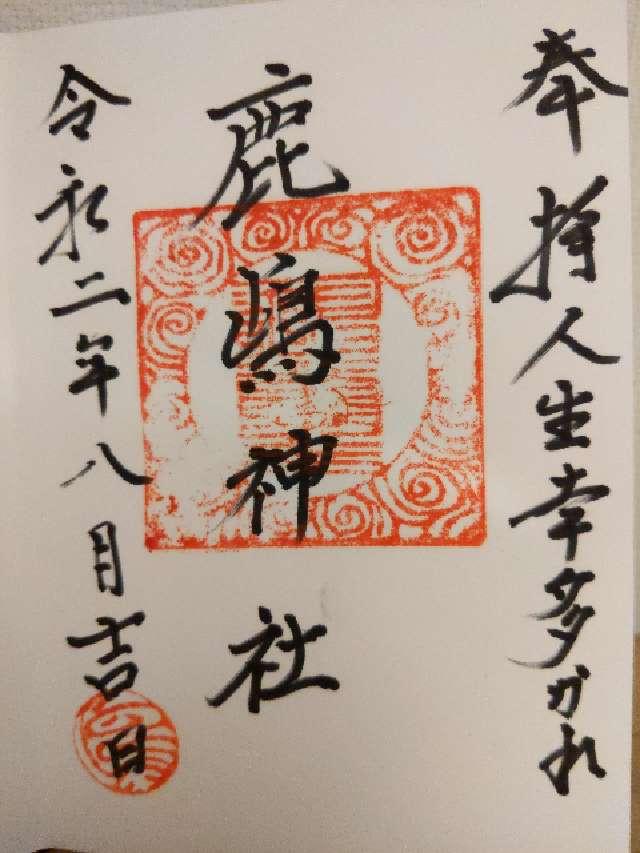 奉持人生幸多かれ
鹿嶋神社
令和二年八月吉日